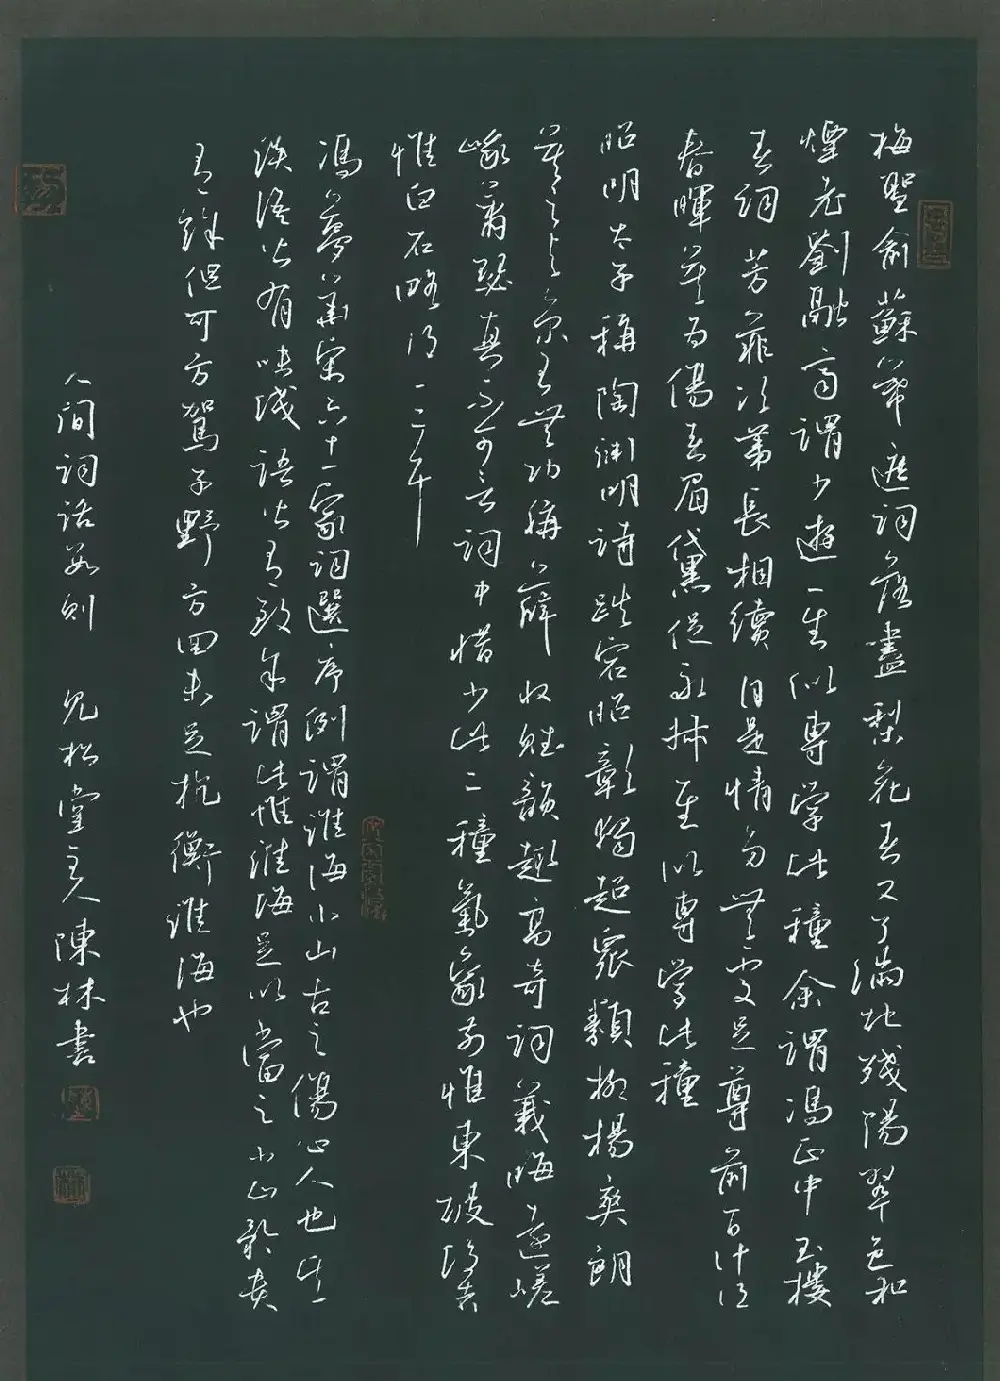 梅聖俞蘇幕遮詞落盡梨花春又了滿地殘陽翠色和
煙老劉融齋謂少遊一生似專學此種余謂馮正中玉樓
春詞芳菲次第長相續自是情多無處足尊前百計得
春暉莫為傷春眉黛促永叔一生似專學此種
昭明太子稱陶淵明詩跌宕昭彰獨超眾類抑揚爽朗
莫之與京王無功稱薛收賦韻趣高奇詞義晦遠嵯
峨蕭瑟真不可言詞中惜少此二種氣象前惟東坡後者
惟白石略得一二耳
馮夢華宋六十一家詞選序例謂淮海小山古之傷心人也其
淡語皆有味淺語皆有致余謂此惟淮海足以當之小山矜貴
有餘但可方駕子野方回未足抗衡淮海也
人間詞話數則 見松堂主人陳林書